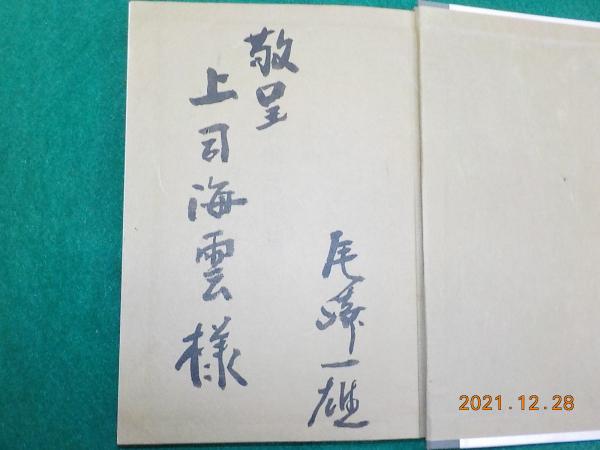 敬呈
上司海雲様
尾崎一雄
2021.12.28